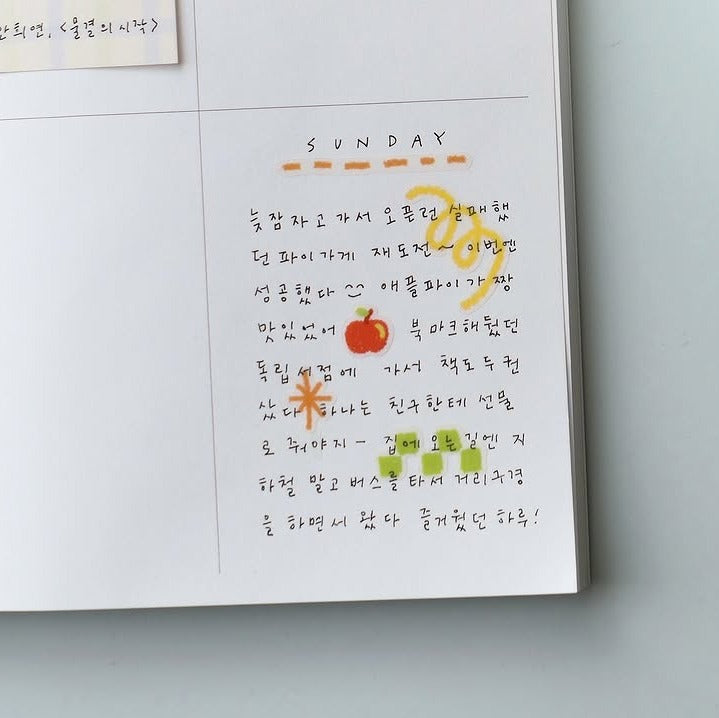 안희연, <물결의 시작>
SUNDAY
늦잠 자고 가서 오픈런 실패했
던 파이가게 재도전~ 이번엔
성공했다 ^^ 애플파이가 짱
맛있었어 북마크해뒀던
독립서점에 가서 책도 두 권
샀다 하나는 친구한테 선물
로 줘야지- 집에 오는 길엔 지
하철 말고 버스를 타서 거리구경
을 하면서 왔다 즐거웠던 하루!